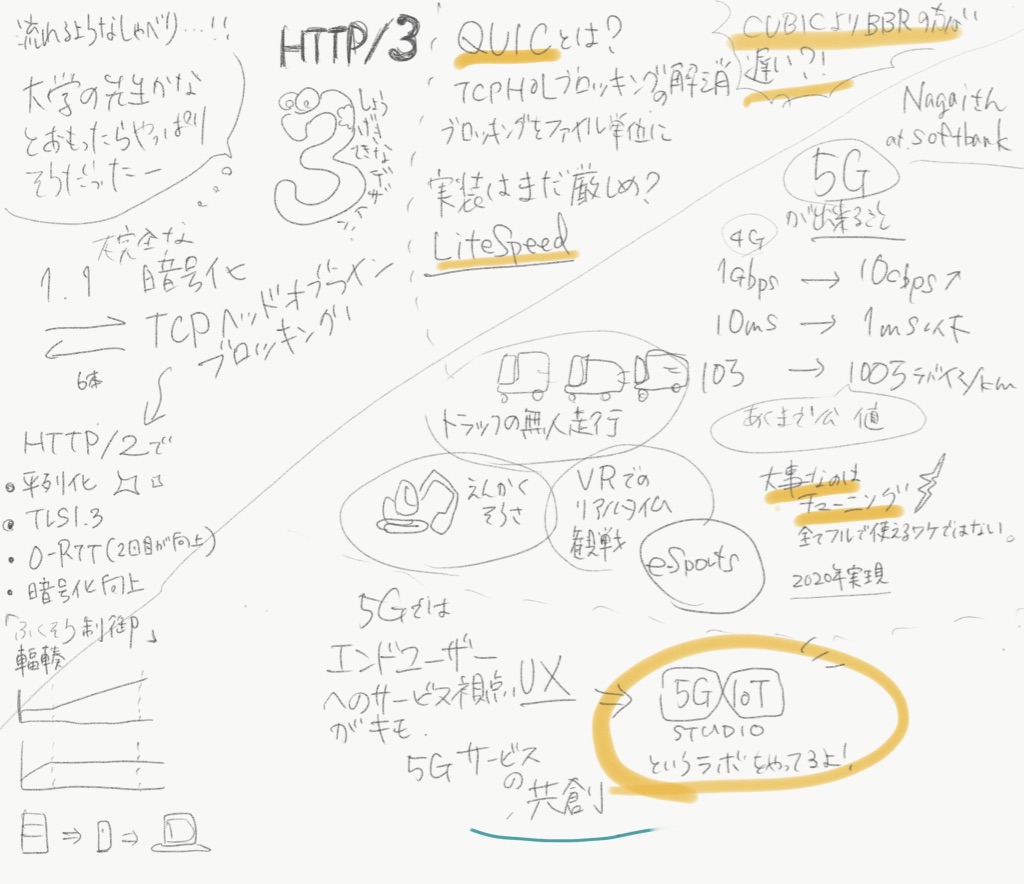 流れるようなしゃべり…!!
大学の先生かな
とおもったらやっぱり
そうだったー
HTTP/3
3
しょう
げき
てきな
デザ
イン
1.1
完全な
暗号化
TCPヘッドオブライン
ブロッキング
6本
HTTP/2で
・平列化
・TLS1.3
・0-RTT(2回目が向上)
・暗号化向上
「ふくそう制御」
輻輳
QUICとは?
TCPHoLブロッキングの解消
ブロッキングをファイル単位に
実装はまだ厳しめ?
LiteSpeed
CUBICよりBBRの方が
遅い?!
Nagaiさん
at softbank
5G
が出来ること
4G
1Gbps → 10Gbps↗
10ms → 1ms以下
10万 → 100万デバイス/km
あくまで公 値
トラックの無人走行
えんかく
そうさ
VRでの
リアルタイム
観戦
e-Spouts
大事なのは
チューニング
全てフルで使えるワケではない。
2020年実現
5Gでは
エンドユーザー
へのサービス視点、UX
がキモ.
5Gサービス
の
共創
⇒
5G IoT
STUDIO
というラボをやってるよ!